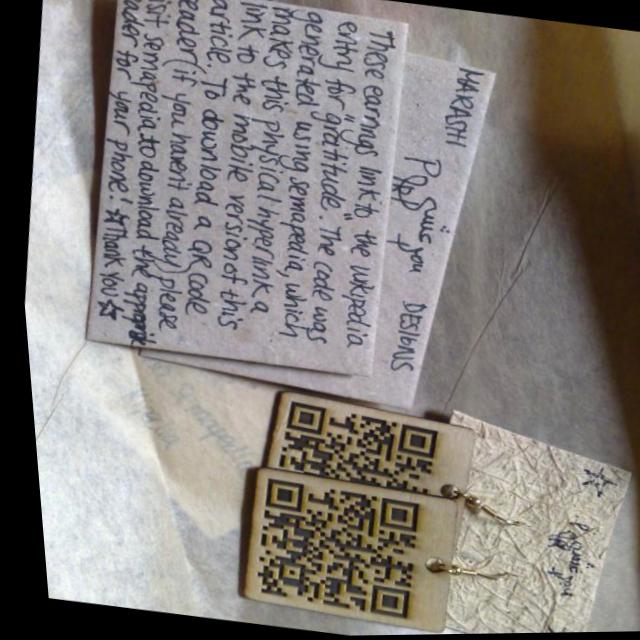 These earrings link to the wikipedia
entry for "gratitude". The code was
generated using semapedia, which
makes this physical hyperlink a
link to the mobile version of this
article. To download a QR Code
reader (if you haven't already) please
visit semapedia to download the
reader to your phone! ☆Thank You!☆
MARISHI
DESIGNS